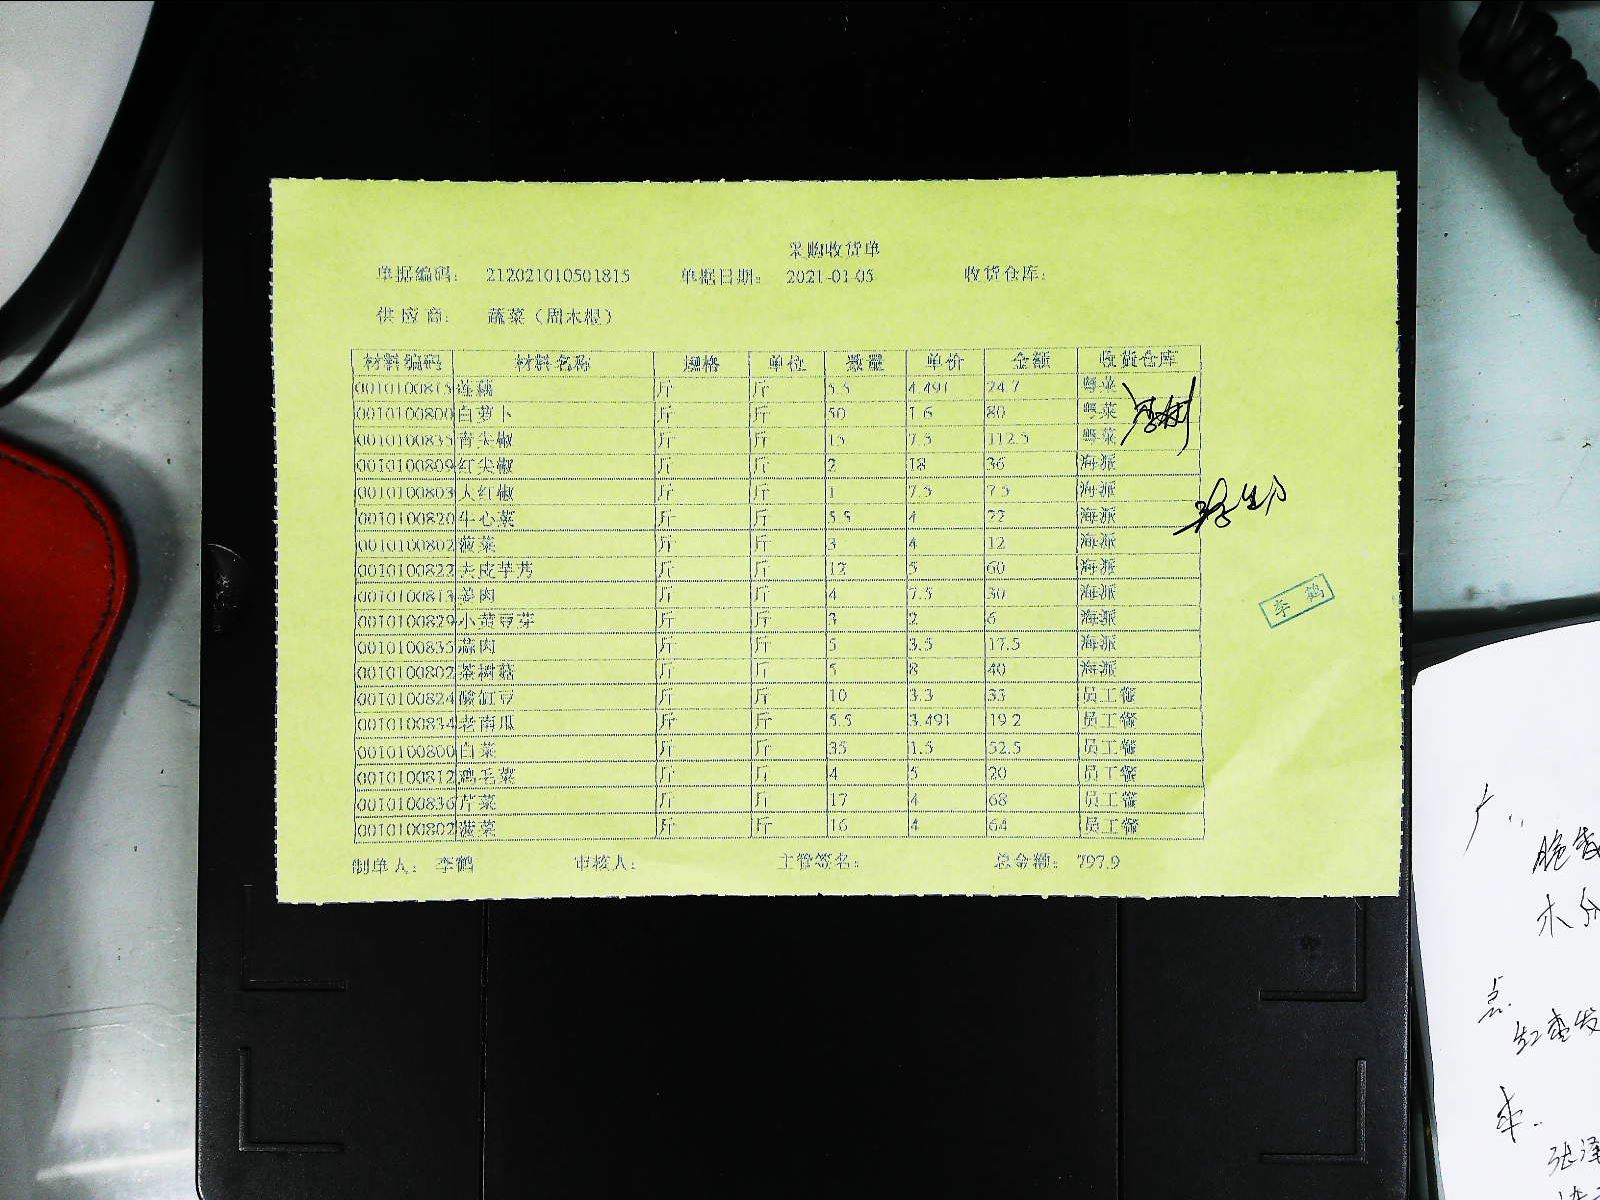 采购收货单
单据编码: 212021010501815 单据日期: 2021-01-05 收货仓库:
供应商: 蔬菜(周木根)
材料编码 材料名称 规格 单位 数量 单价 金额 收货仓库
0010100815 莲藕 斤 斤 5.5 4.491 24.7 粤菜
0010100800 白萝卜 斤 斤 50 1.6 80 粤菜
0010100835 青尖椒 斤 斤 15 7.5 112.5 粤菜
0010100809 红尖椒 斤 斤 2 18 36 海派
0010100803 大红椒 斤 斤 1 7.5 7.5 海派
0010100820 牛心菜 斤 斤 5.5 4 22 海派
0010100802 菠菜 斤 斤 3 4 12 海派
0010100822 去皮芋艿 斤 斤 12 5 60 海派
0010100813 姜肉 斤 斤 4 7.5 30 海派
0010100829 小黄豆芽 斤 斤 3 2 6 海派
0010100835 蒜肉 斤 斤 5 3.5 17.5 海派
0010100802 茶树菇 斤 斤 5 8 40 海派
0010100824 酸豇豆 斤 斤 10 3.3 33 员工餐
0010100834 老南瓜 斤 斤 5.5 3.491 19.2 员工餐
0010100800 白菜 斤 斤 35 1.5 52.5 员工餐
0010100812 鸡毛菜 斤 斤 4 5 20 员工餐
0010100836 芹菜 斤 斤 17 4 68 员工餐
0010100802 菠菜 斤 斤 16 4 64 员工餐
制单人: 李鹤 审核人: 主管签名: 总金额: 797.9
李鹤